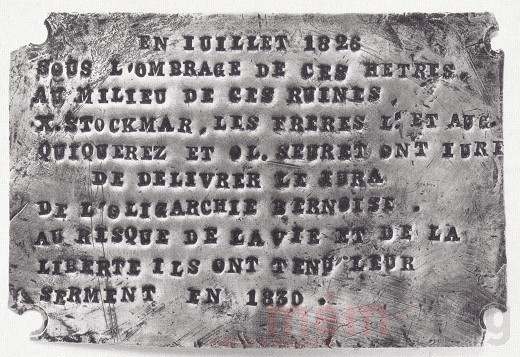 EN IUILLET 1826
SOUS L'OMBRAGE DE CES HETRES,
AU MILIEU DE CES RUINES,
X. STOCKMAR, LES FRERES L. ET AUG.
QUIQUEREZ ET OL. SEURET ONT IURE
DE DELIVRER LE IURA
DE L'OLIGARCHIE BERNOISE.
AU RISQUE DE LA VIE ET DE LA
LIBERTE ILS ONT TENU LEUR
SERMENT EN 1830.